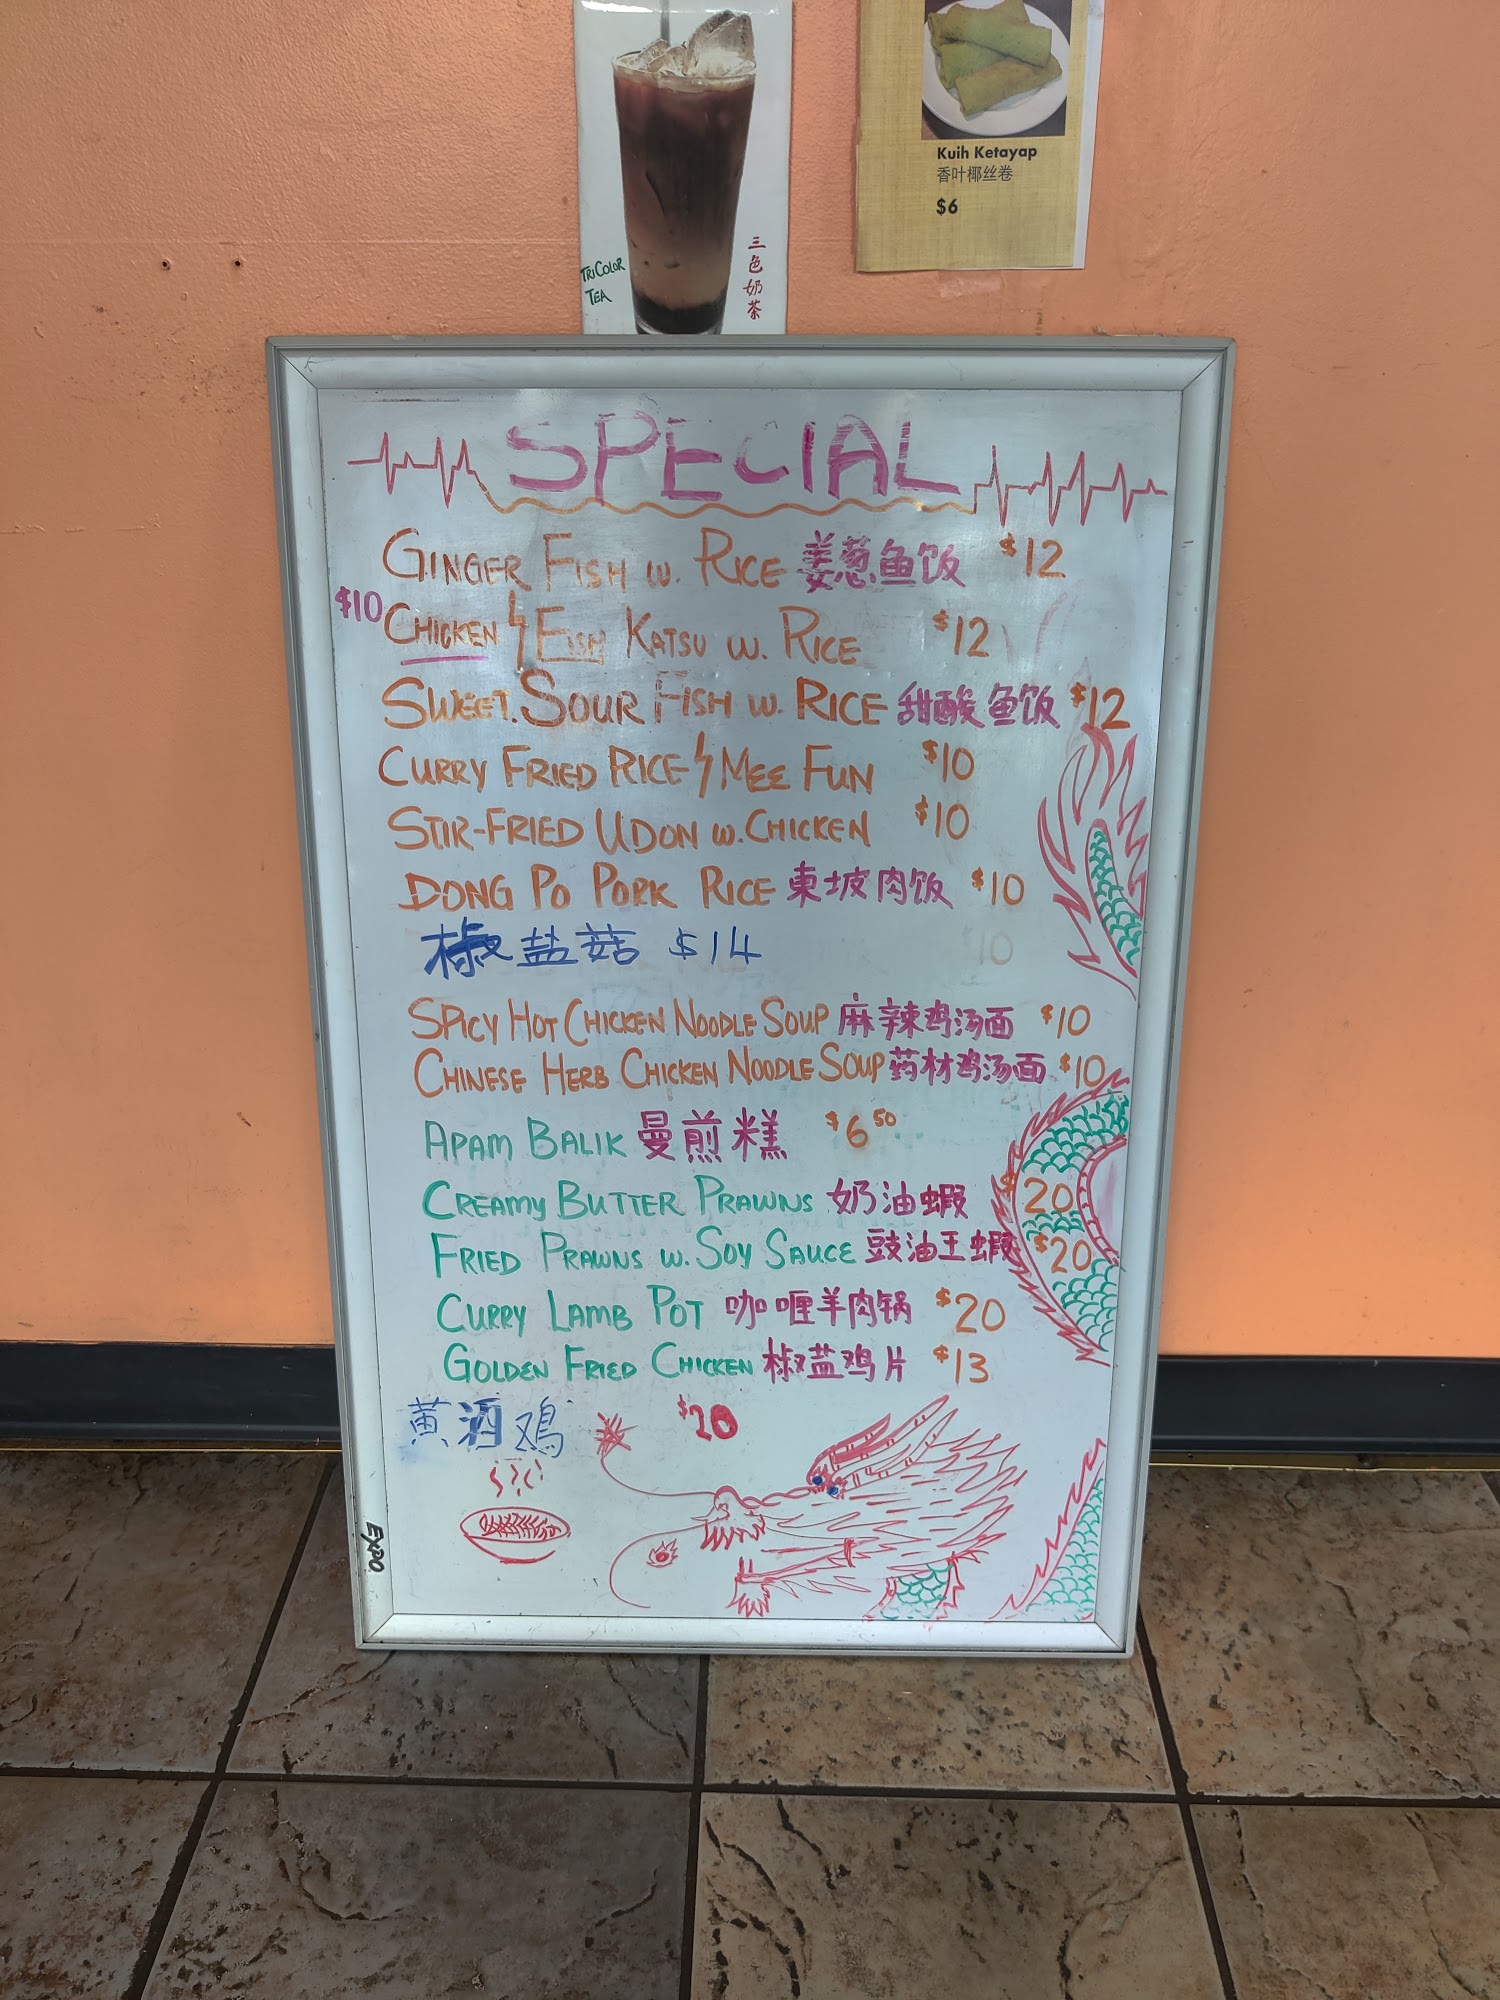 TRICOLOR
TEA
三色奶茶
Kuih Ketayap
香叶椰丝卷
$6
SPECIAL
GINGER FISH W. RICE 姜葱鱼饭 $12
$10 CHICKEN / FISH KATSU W. RICE $12
SWEET. SOUR FISH W. RICE 甜酸鱼饭 $12
CURRY FRIED RICE / MEE FUN $10
STIR-FRIED UDON W. CHICKEN $10
DONG PO PORK RICE 東坡肉饭 $10
椒盐菇 $14
SPICY HOT CHICKEN NOODLE SOUP 麻辣鸡汤面 $10
CHINESE HERB CHICKEN NOODLE SOUP 药材鸡汤面 $10
APAM BALIK 曼煎糕 $6 50
CREAMY BUTTER PRAWNS 奶油蝦 $20
FRIED PRAWNS W. SOY SAUCE 豉油王蝦 $20
CURRY LAMB POT 咖喱羊肉锅 $20
GOLDEN FRIED CHICKEN 椒盐鸡片 $13
黄酒鸡 $20
EXPO